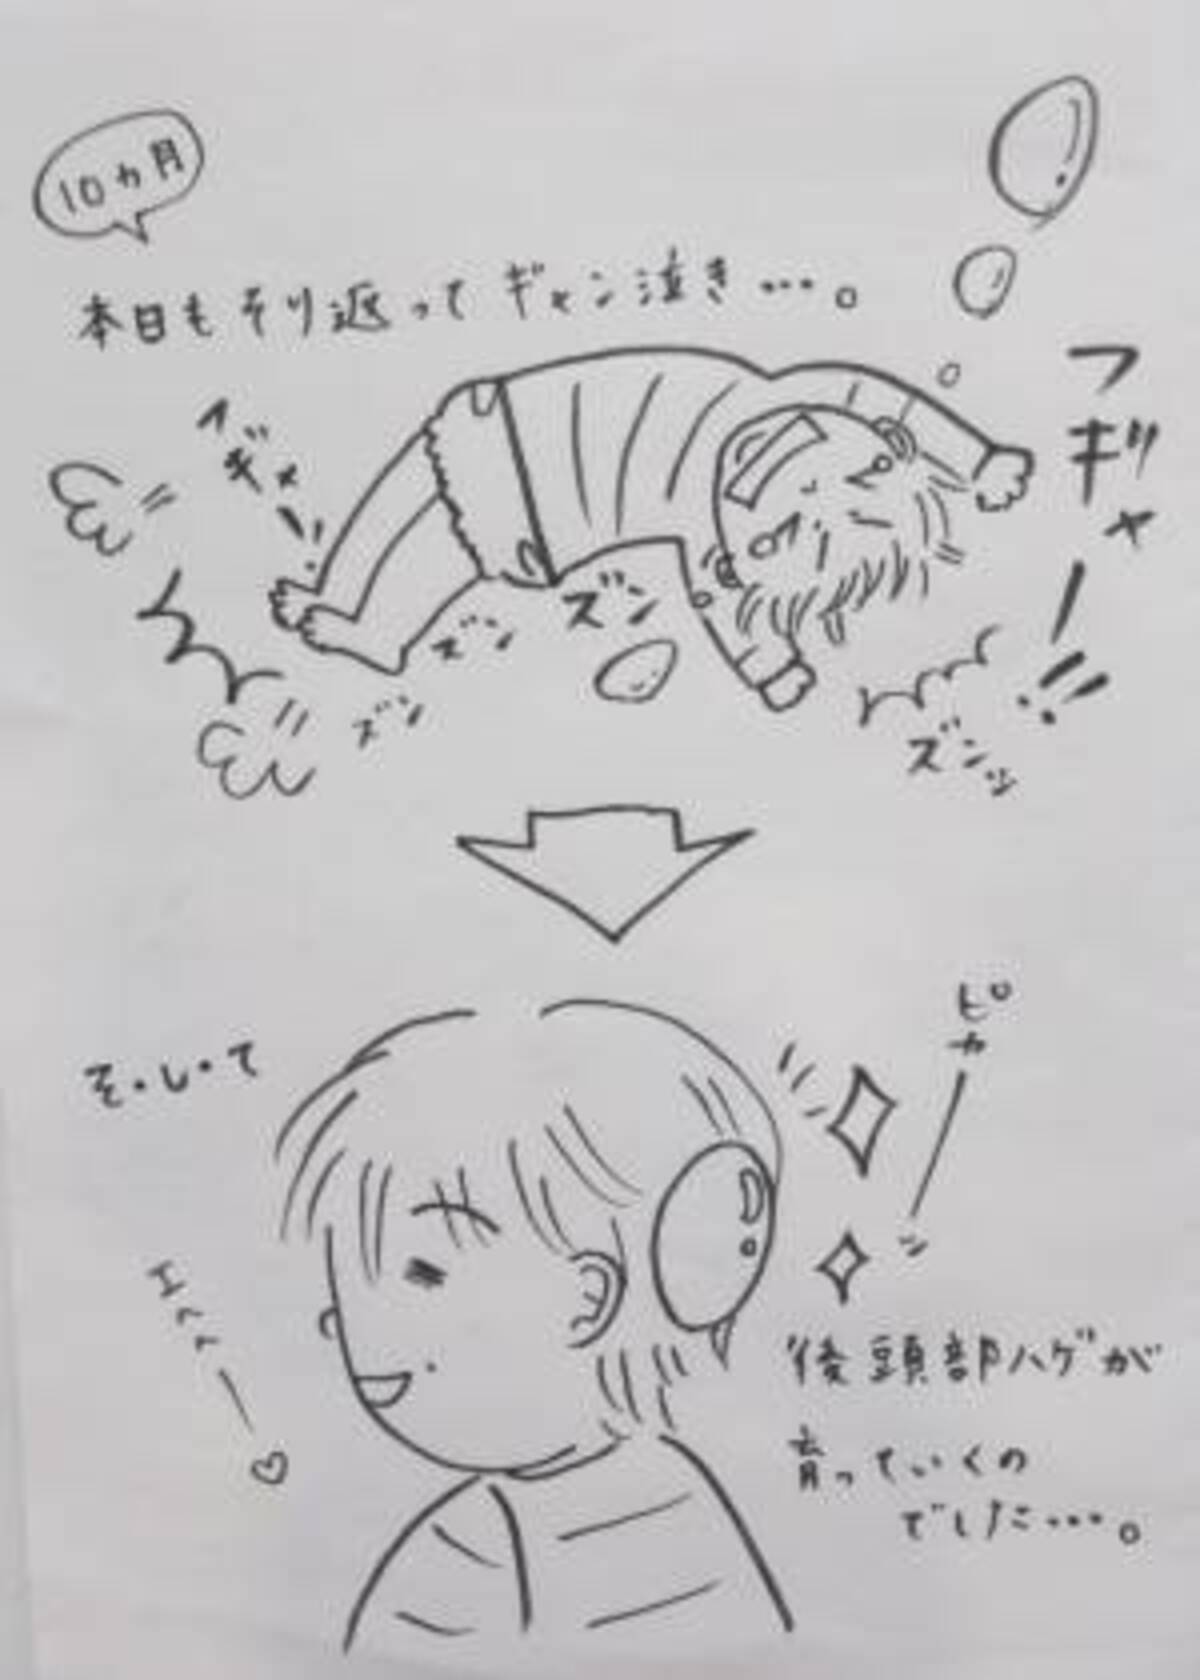 10ヵ月
本日もそり返ってギャン泣き…。
フギャ!!!
ズン
ズン
ズン
ズンッ
そ・し・て
ピカーン
エヘヘー♡
後頭部ハゲが
育っていくの
でした…。